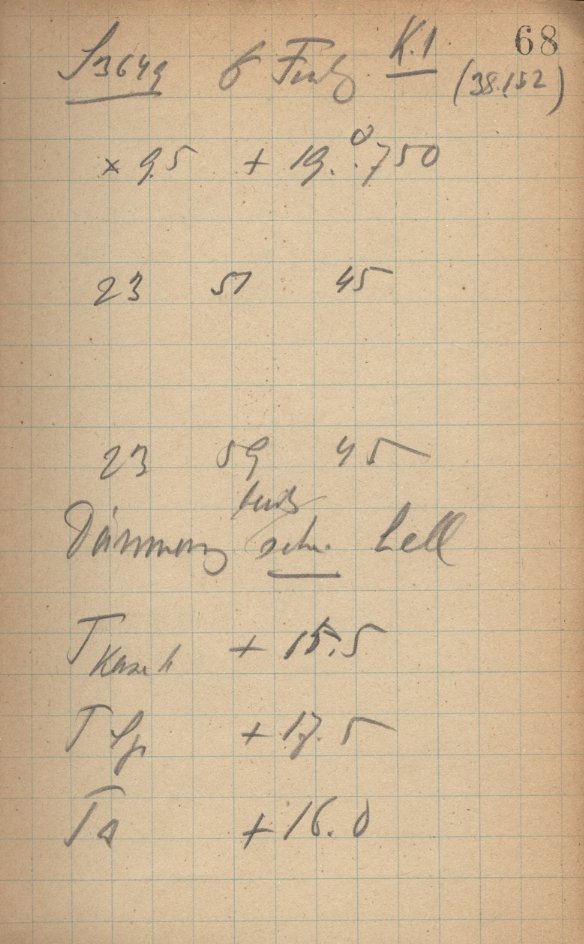 68
S3649 6 K.1 (38.152)
× 95 + 19.°750
23 51 45
23 59 45
Dämmerung sehr hell
T Kasch + 15.5
T Sp + 17.5
Ta + 16.0